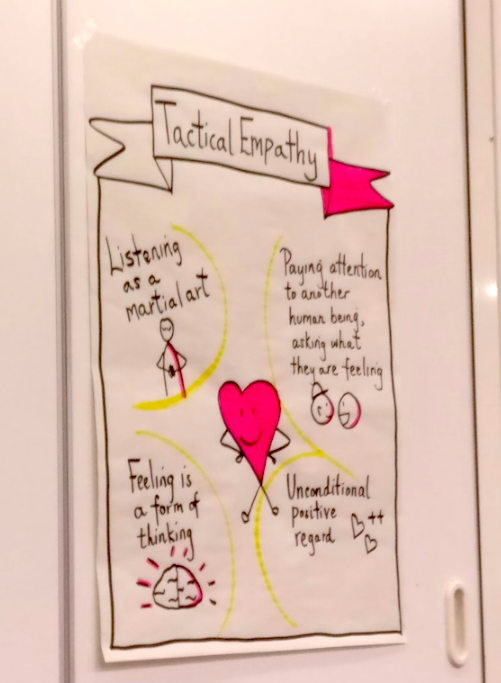 Tactical Empathy
Listening
as a
martial art
Paying attention
to another
human being,
asking what
they are feeling
Feeling is
a form of
thinking
Unconditional
positive
regard
++